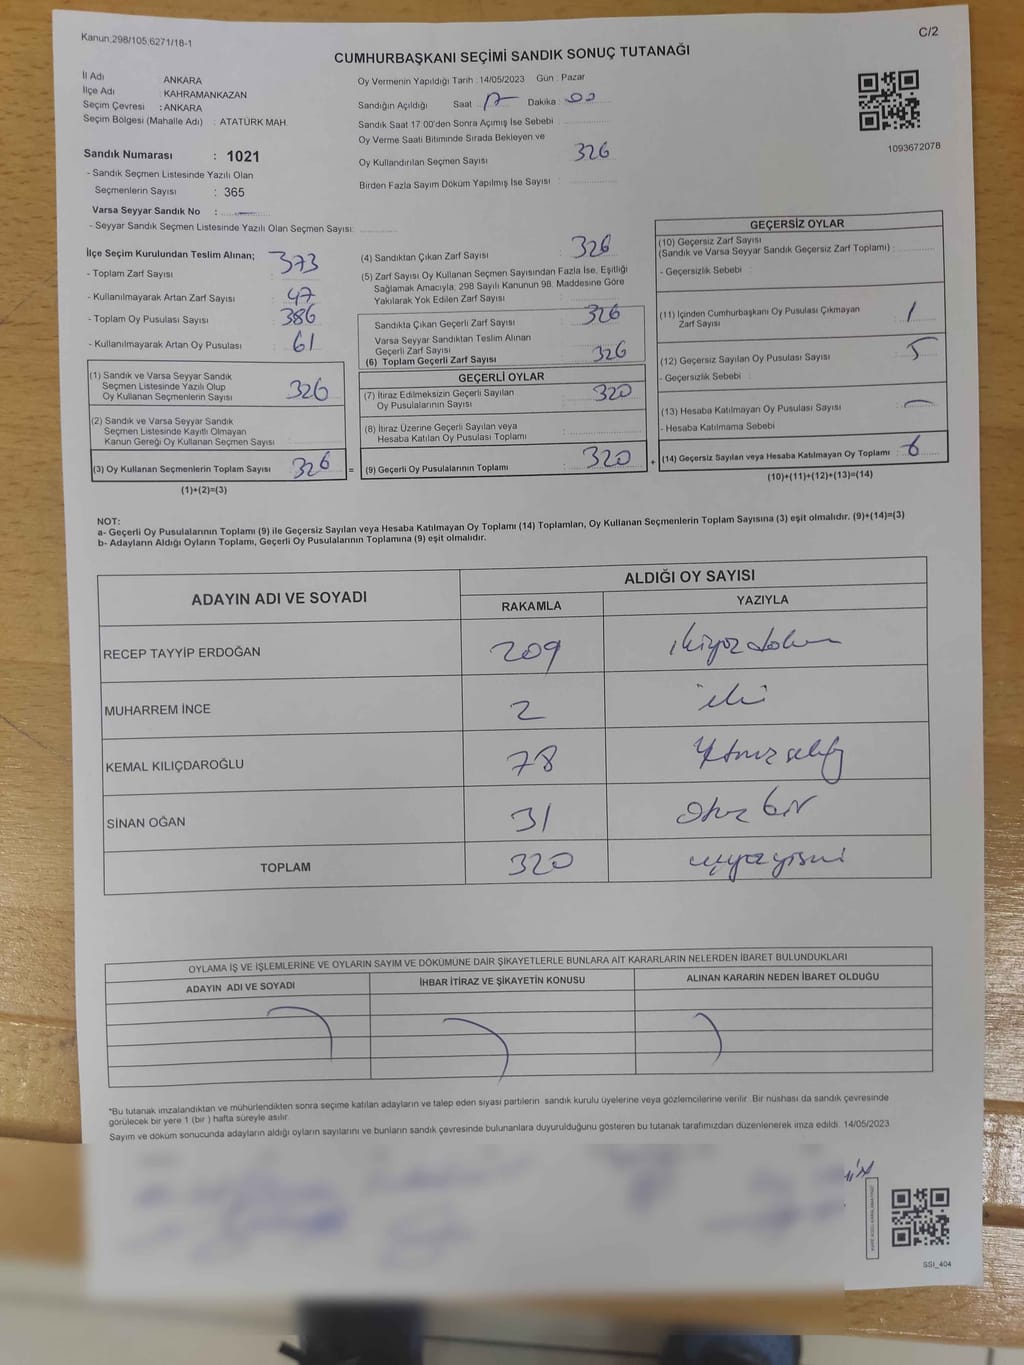 Kanun:298/105,6271/18-1
C/2
CUMHURBAŞKANI SEÇİMİ SANDIK SONUÇ TUTANAĞI
İl Adı ANKARA
İlçe Adı : KAHRAMANKAZAN
Seçim Çevresi : ANKARA
Seçim Bölgesi (Mahalle Adı) : ATATÜRK MAH.
Sandık Numarası : 1021
- Sandık Seçmen Listesinde Yazılı Olan
Seçmenlerin Sayısı : 365
Varsa Seyyar Sandık No :
- Seyyar Sandık Seçmen Listesinde Yazılı Olan Seçmen Sayısı:
Oy Vermenin Yapıldığı Tarih : 14/05/2023 Gün : Pazar
Sandığın Açıldığı Saat : 17 Dakika : 00
Sandık Saat 17:00'den Sonra Açımış İse Sebebi :
Oy Verme Saati Bitiminde Sırada Bekleyen ve
Oy Kullandırılan Seçmen Sayısı 326
Birden Fazla Sayım Döküm Yapılmış İse Sayısı :
1093672078
İlçe Seçim Kurulundan Teslim Alınan;
- Toplam Zarf Sayısı 373
- Kullanılmayarak Artan Zarf Sayısı 47
- Toplam Oy Pusulası Sayısı 386
- Kullanılmayarak Artan Oy Pusulası 61
(1) Sandık ve Varsa Seyyar Sandık
Seçmen Listesinde Yazılı Olup
Oy Kullanan Seçmenlerin Sayısı 326
(2) Sandık ve Varsa Seyyar Sandık
Seçmen Listesinde Kayıtlı Olmayan
Kanun Gereği Oy Kullanan Seçmen Sayısı
(3) Oy Kullanan Seçmenlerin Toplam Sayısı 326 =
(1)+(2)=(3)
(4) Sandıktan Çıkan Zarf Sayısı : 326
(5) Zarf Sayısı Oy Kullanan Seçmen Sayısından Fazla İse, Eşitliği
Sağlamak Amacıyla, 298 Sayılı Kanunun 98. Maddesine Göre
Yakılarak Yok Edilen Zarf Sayısı :
Sandıkta Çıkan Geçerli Zarf Sayısı : 326
Varsa Seyyar Sandıktan Teslim Alınan
Geçerli Zarf Sayısı
(6) Toplam Geçerli Zarf Sayısı : 326
GEÇERLİ OYLAR
(7) İtiraz Edilmeksizin Geçerli Sayılan
Oy Pusulalarının Sayısı : 320
(8) İtiraz Üzerine Geçerli Sayılan veya
Hesaba Katılan Oy Pusulası Toplamı :
(9) Geçerli Oy Pusulalarının Toplamı : 320 +
GEÇERSİZ OYLAR
(10) Geçersiz Zarf Sayısı
(Sandık ve Varsa Seyyar Sandık Geçersiz Zarf Toplamı) :
- Geçersizlik Sebebi :
(11) İçinden Cumhurbaşkanı Oy Pusulası Çıkmayan
Zarf Sayısı 1
(12) Geçersiz Sayılan Oy Pusulası Sayısı : 5
- Geçersizlik Sebebi :
(13) Hesaba Katılmayan Oy Pusulası Sayısı : —
- Hesaba Katılmama Sebebi
(14) Geçersiz Sayılan veya Hesaba Katılmayan Oy Toplamı : 6
(10)+(11)+(12)+(13)=(14)
NOT:
a- Geçerli Oy Pusulalarının Toplamı (9) ile Geçersiz Sayılan veya Hesaba Katılmayan Oy Toplamı (14) Toplamları, Oy Kullanan Seçmenlerin Toplam Sayısına (3) eşit olmalıdır. (9)+(14)=(3)
b- Adayların Aldığı Oyların Toplamı, Geçerli Oy Pusulalarının Toplamına (9) eşit olmalıdır.
ADAYIN ADI VE SOYADI ALDIĞI OY SAYISI
RAKAMLA YAZIYLA
RECEP TAYYİP ERDOĞAN 209 ikiyüz dokuz
MUHARREM İNCE 2 iki
KEMAL KILIÇDAROĞLU 78 Yetmiş sekiz
SİNAN OĞAN 31 Otuz bir
TOPLAM 320 üçyüz yirmi
OYLAMA İŞ VE İŞLEMLERİNE VE OYLARIN SAYIM VE DÖKÜMÜNE DAİR ŞİKAYETLERLE BUNLARA AİT KARARLARIN NELERDEN İBARET BULUNDUKLARI
ADAYIN ADI VE SOYADI İHBAR İTİRAZ VE ŞİKAYETİN KONUSU ALINAN KARARIN NEDEN İBARET OLDUĞU
*Bu tutanak imzalandıktan ve mühürlendikten sonra seçime katılan adayların ve talep eden siyasi partilerin sandık kurulu üyelerine veya gözlemcilerine verilir. Bir nüshası da sandık çevresinde
görülecek bir yere 1 (bir ) hafta süreyle asılır.
Sayım ve döküm sonucunda adayların aldığı oyların sayılarını ve bunların sandık çevresinde bulunanlara duyurulduğunu gösteren bu tutanak tarafımızdan düzenlenerek imza edildi. 14/05/2023
SSI_404